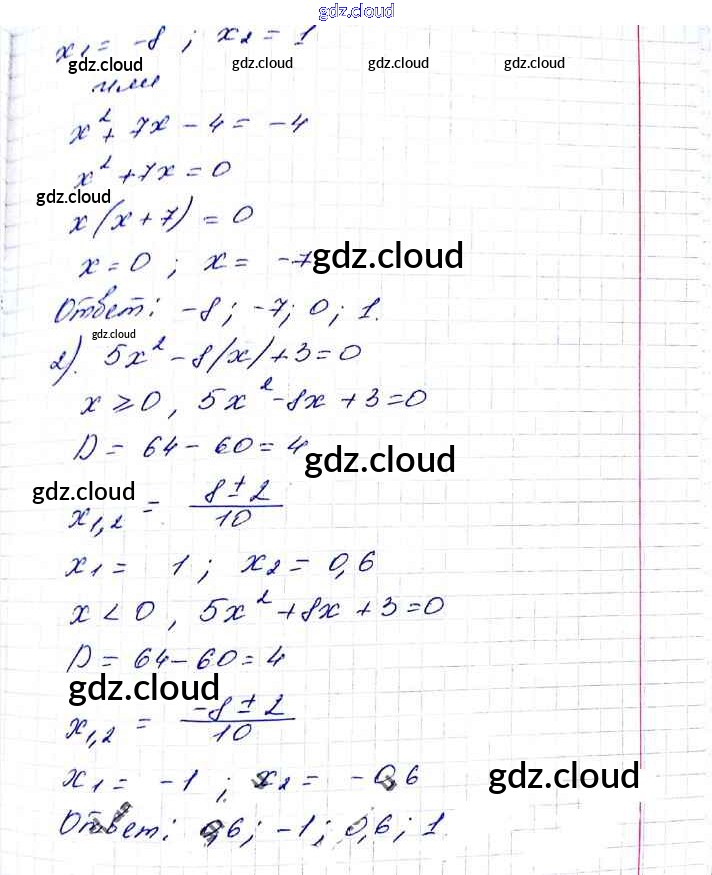 gdz.cloud
x₁ = -8 ; x₂ = 1
gdz.cloud gdz.cloud gdz.cloud gdz.cloud
или
x² + 7x - 4 = -4
x² + 7x = 0
gdz.cloud
x(x + 7) = 0
x = 0 ; x = -7 gdz.cloud
Ответ: -8; -7; 0; 1.
gdz.cloud
2). 5x² - 8|x| + 3 = 0
x ≥ 0, 5x² - 8x + 3 = 0
D = 64 - 60 = 4
gdz.cloud
gdz.cloud
x₁,₂ = (8 ± 2)/10
x₁ = 1 ; x₂ = 0,6
x < 0, 5x² + 8x + 3 = 0
D = 64 - 60 = 4
gdz.cloud
x₁,₂ = (-8 ± 2)/10
x₁ = -1 ; x₂ = -0,6 gdz.cloud
Ответ: 0,6; -1; 0,6; 1.